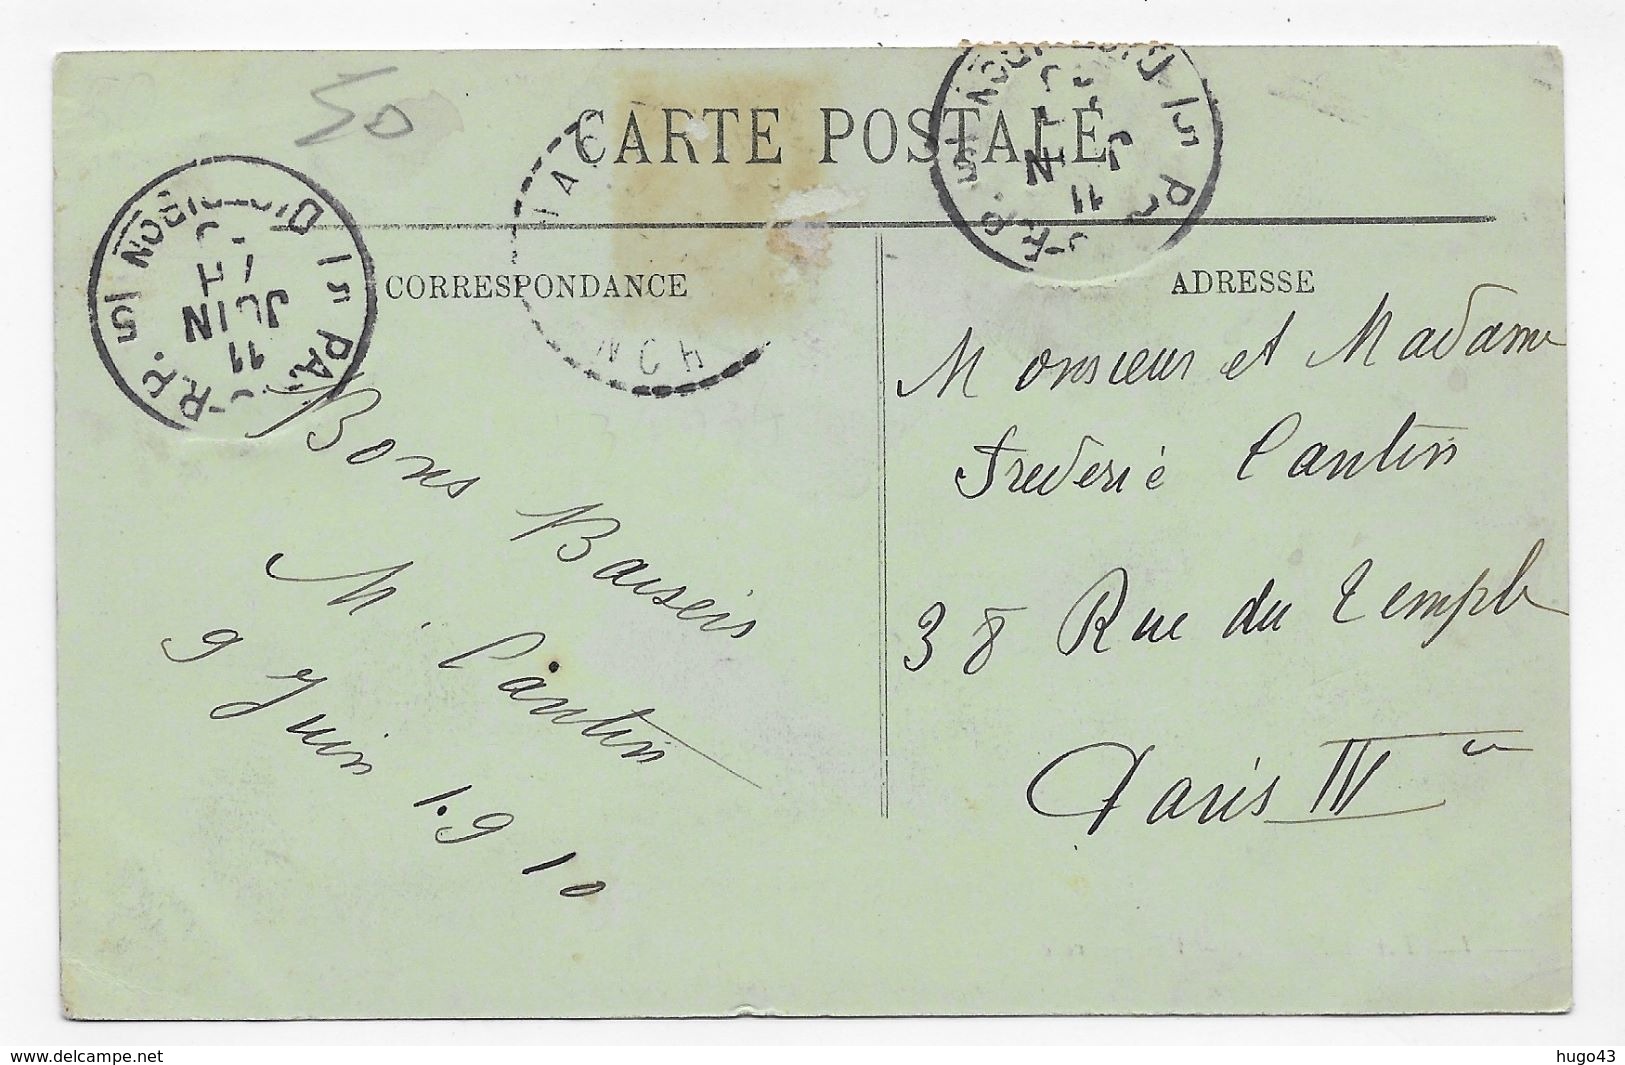 50
CARTE POSTALE
CORRESPONDANCE
ADRESSE
11
JUIN
11
Bons Baisers
M. Cantin
9 Juin 1910
Monsieur et Madame
Frederic Cantin
38 Rue du Temple
Paris IV
www.delcampe.net
hugo43